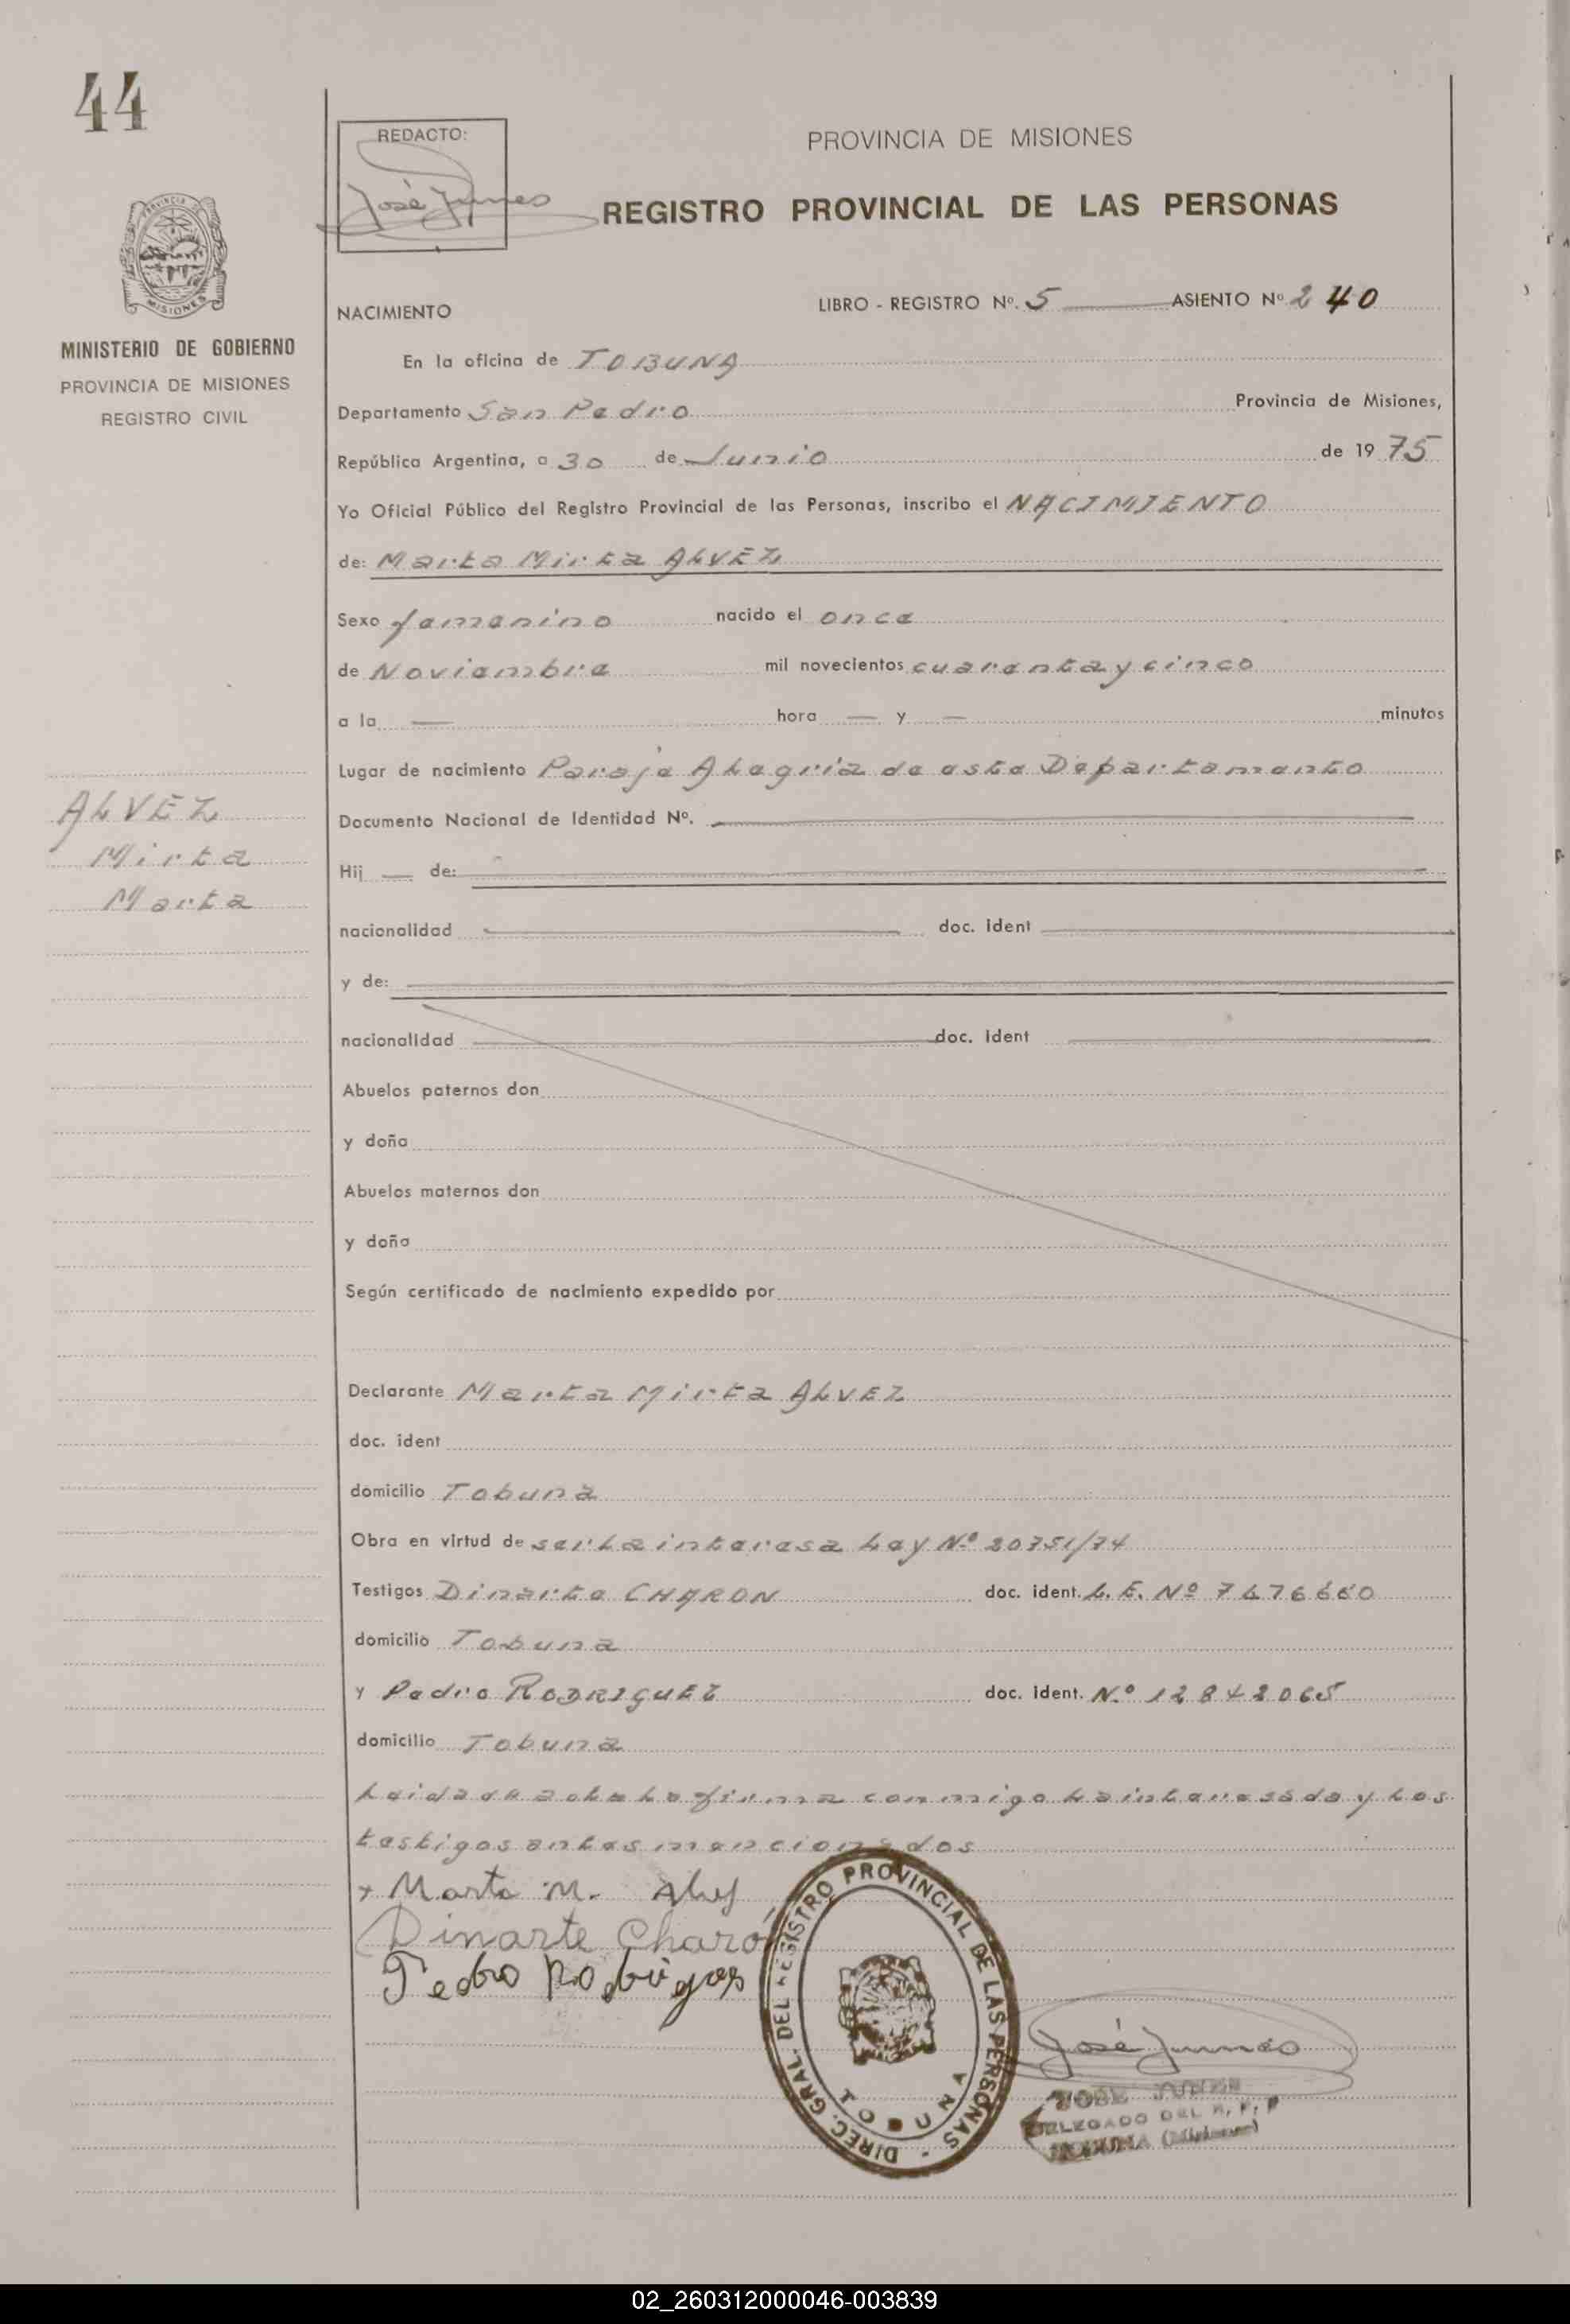 44
REDACTO:
José Junes
PROVINCIA DE MISIONES
REGISTRO PROVINCIAL DE LAS PERSONAS
PROVINCIA DE
MISIONES
MINISTERIO DE GOBIERNO
PROVINCIA DE MISIONES
REGISTRO CIVIL
NACIMIENTO LIBRO - REGISTRO Nº. 5 ASIENTO Nº 240
En la oficina de TOBUNA
Departamento San Pedro Provincia de Misiones,
República Argentina, a 30 de Junio de 1975
Yo Oficial Público del Registro Provincial de las Personas, inscribo el NACIMIENTO
de: Marta Mirta ALVEZ
Sexo femenino nacido el once
de Noviembre mil novecientos cuarenta y cinco
a la — hora — y — minutos
Lugar de nacimiento Paraje Alegria de este Departamento
ALVEZ
Mirta
Marta
Documento Nacional de Identidad Nº.
Hij — de:
nacionalidad doc. ident
y de:
nacionalidad doc. ident
Abuelos paternos don
y doña
Abuelos maternos don
y doña
Según certificado de nacimiento expedido por
Declarante Marta Mirta ALVEZ
doc. ident
domicilio Tobuna
Obra en virtud de ser la interesa Ley Nº 20751/74
Testigos Dinarte CHARON doc. ident. L. E. Nº 7476660
domicilio Tobuna
y Pedro RODRIGUEZ doc. ident. Nº 12842065
domicilio Tobuna
Leida el acta la firma conmigo la interesada y los
testigos antes mencionados
+ Marta M. Alves
Dinarte Charón
Pedro
DIREC. GRAL. DEL REGISTRO PROVINCIAL DE LAS PERSONAS -
TOBUNA
José Junes
JOSE JUNES
DELEGADO DEL R. P. P
TOBUNA (Misiones)
02_260312000046-003839